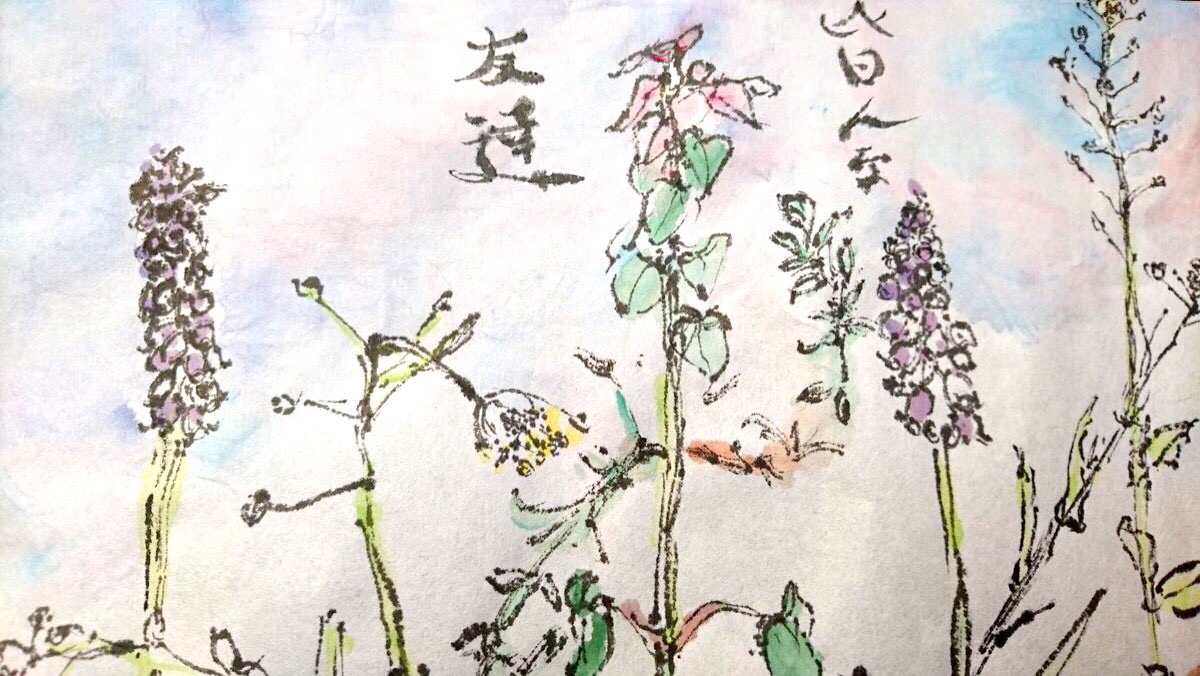 皆んな
友達